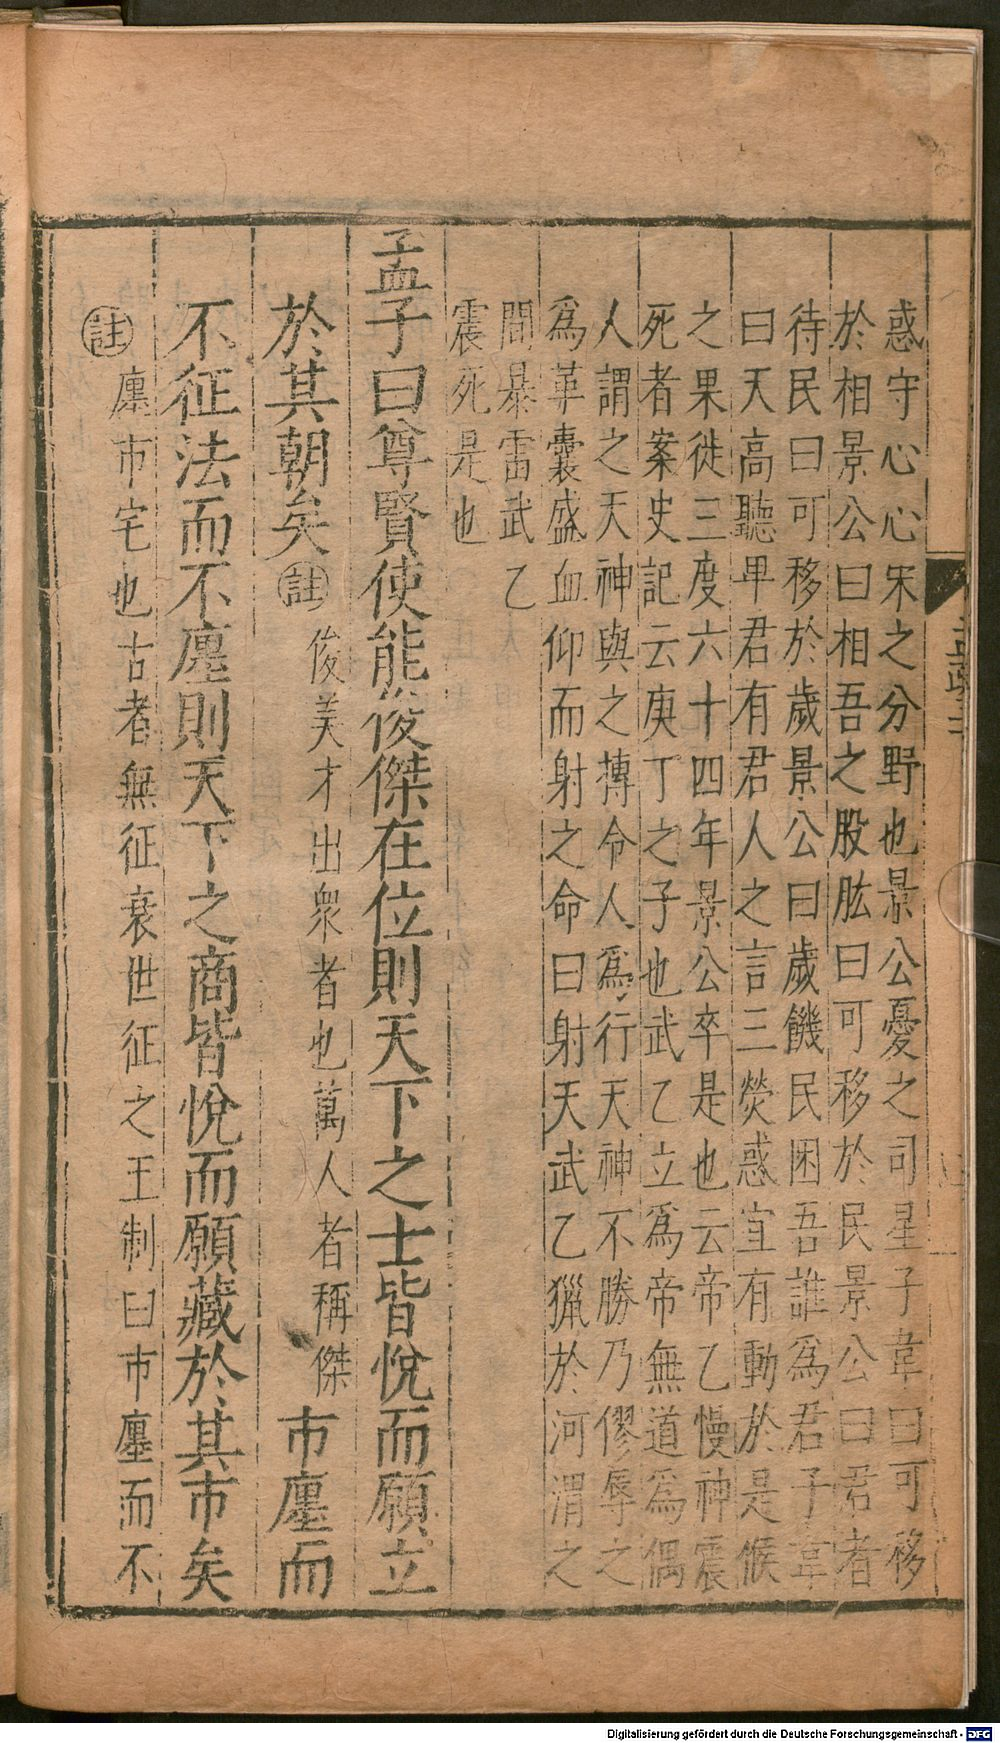 惑守心心宋之分野也景公憂之司星子韋曰可移
於相景公曰相吾之股肱曰可移於民景公曰君者
待民曰可移於歲景公曰歲饑民困吾誰爲君子韋
曰天高聽卑君有君人之言三熒惑宜有動於是候
之果徙三度六十四年景公卒是也云帝乙慢神震
死者案史記云庚丁之子也武乙立爲帝無道爲偶
人謂之天神與之搏令人爲行天神不勝乃僇辱之
爲革囊盛血仰而射之命曰射天武乙獵於河渭之
間暴雷武乙
震死是也
孟子曰尊賢使能俊傑在位則天下之士皆悅而願立
於其朝矣註俊美才出衆者也萬人者稱傑市廛而
不征法而不廛則天下之商皆悅而願藏於其市矣
註廛市宅也古者無征衰世征之王制曰市廛而不
Digitalisierung gefördert durch die Deutsche Forschungsgemeinschaft - DFG